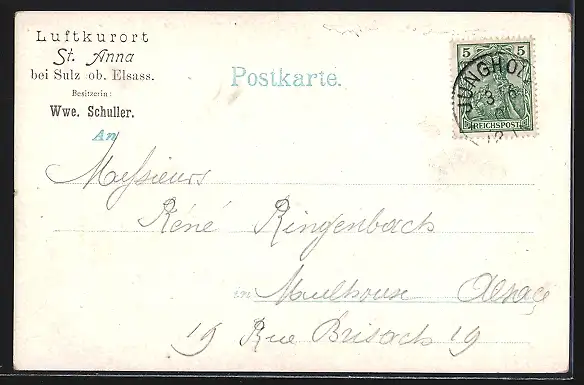 Luftkurort
St. Anna
bei Sulz ob. Elsass.
Besitzerin:
Wwe. Schuller.
Postkarte.
5 5
REICHSPOST
JUNGHOL
An
Messieurs
Réné Ringenbach
in Maulhouse Alsaçe
19 Rue Brisach 19